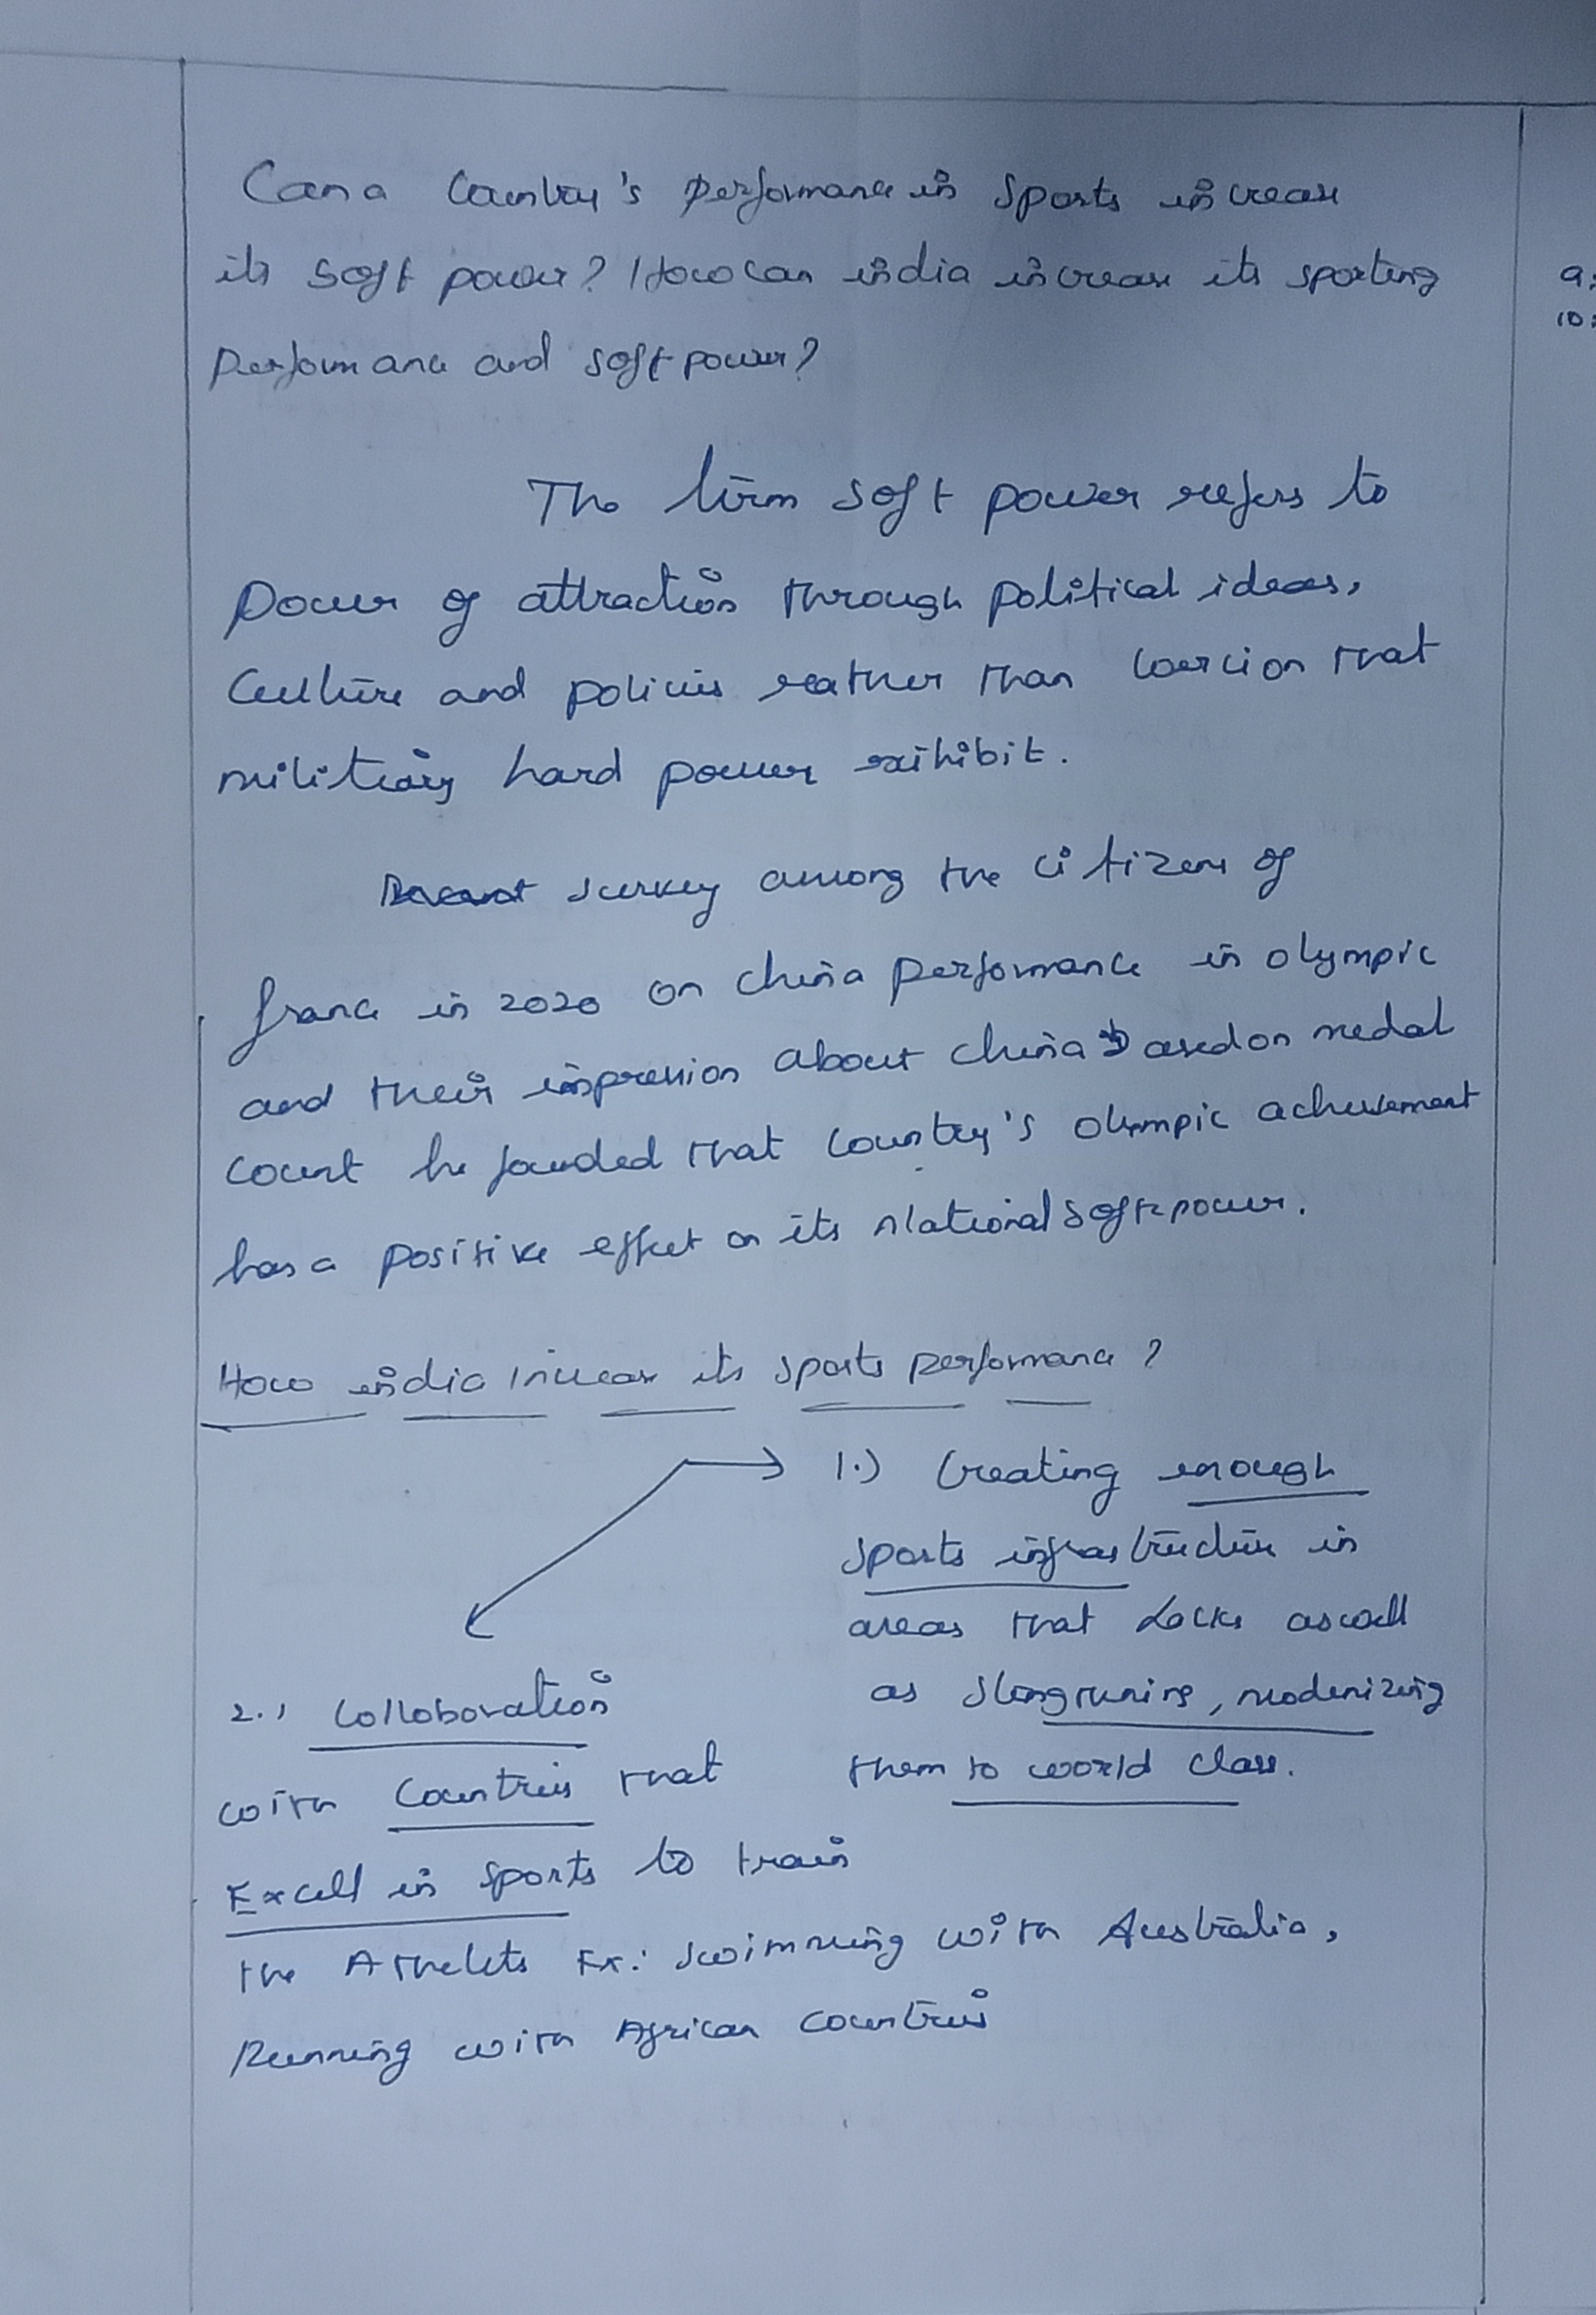 Can a Country's performance in sports increase
its soft power? How can india increase its sporting
performance and soft power?
9:
10:
The term soft power refers to
power of attraction through political ideas,
Culture and policies rather than coercion that
military hard power exihibit.
Recent survey among the citizens of
france in 2020 on china performance in olympic
and their impression about china based on medal
count he founded that country's olympic acheivement
has a positive effect on its national soft power.
How india increase its sports performance?
1.) Creating enough
sports infrastructure in
areas that lacks as well
as , modenizing
them to world class.
2.) Colloboration
with Countries that
Excell in sports to train
the Athelets Ex: swimming with Australia,
Running with African countries